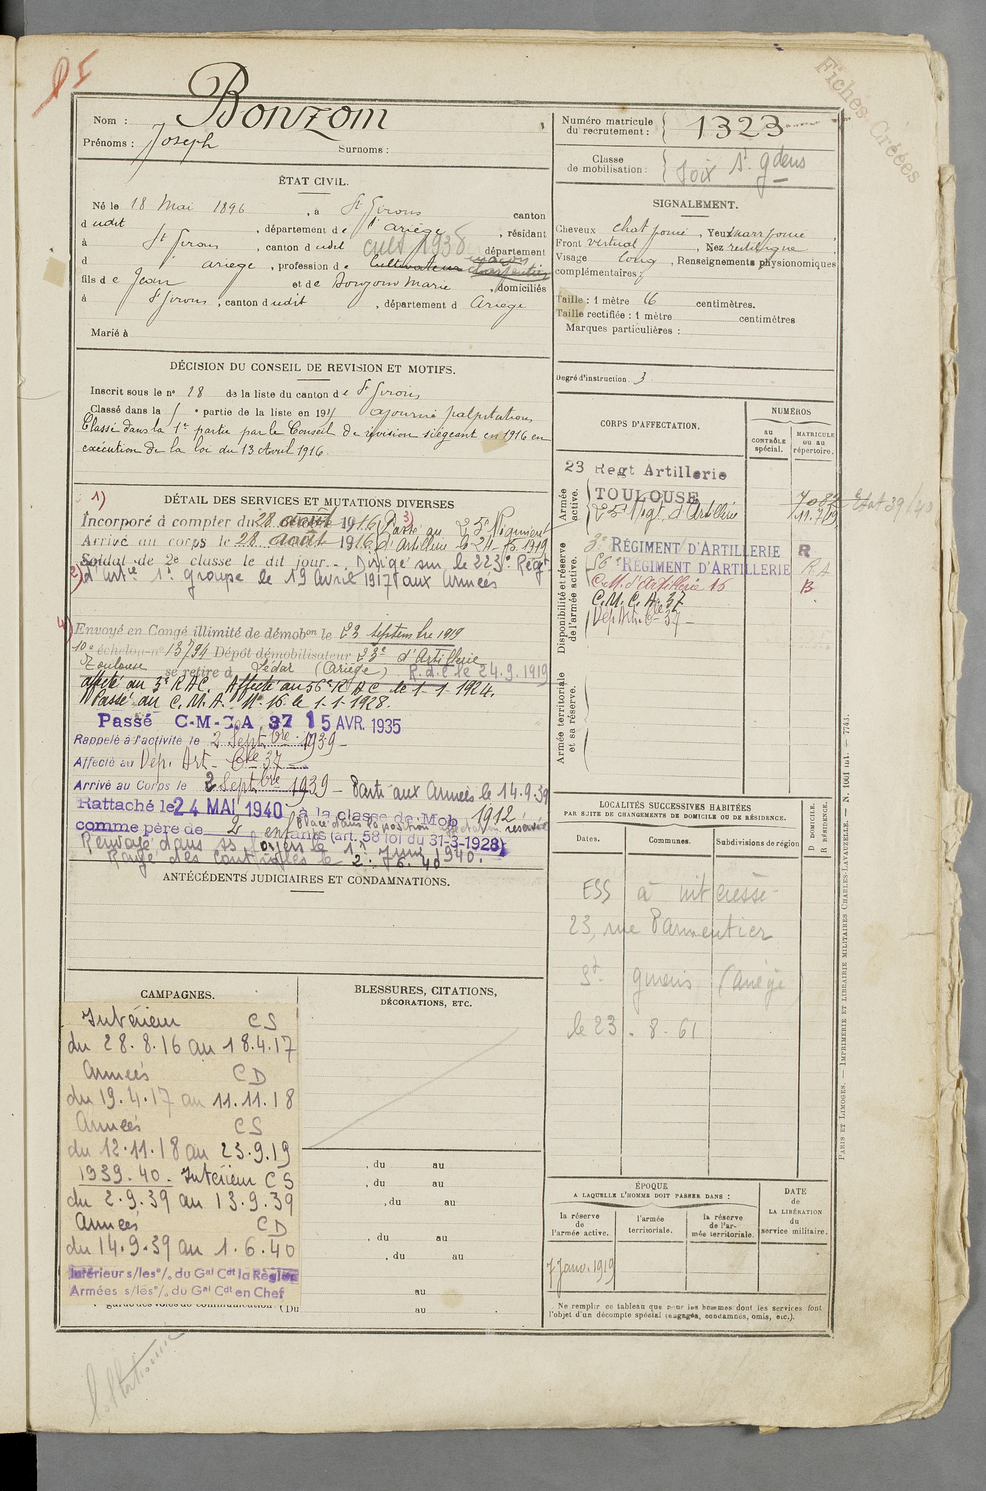 Fiches Créées
Nom : Bonzom
Prénoms : Joseph
Surnoms :
Numéro matricule du recrutement : 1323
Classe de mobilisation : Foix St gdens
ÉTAT CIVIL.
Né le 18 Mai 1896, à St Girons canton
dudit, département de l'Ariège, résidant
à St Girons, canton dudit cult 1938 département
d ariege, profession de Cultivateur charpentier maçon
fils de Jean et de Marie, domiciliés
à St Girons, canton dudit, département d Ariège
Marié à
SIGNALEMENT.
Cheveux chat foncé, Yeux marr foncé,
Front vertical, Nez rectiligne
Visage long, Renseignements physionomiques
complémentaires :
Taille : 1 mètre 66 centimètres.
Taille rectifiée : 1 mètre centimètres
Marques particulières :
Degré d'instruction. 3
DÉCISION DU CONSEIL DE REVISION ET MOTIFS.
Inscrit sous le n° 28 de la liste du canton de St Girons
Classé dans la partie de la liste en 191 ajourné palpitations
Classé dans la 1re partie par le Conseil de révision siégeant en 1916 en
exécution de la loi du 13 Avril 1916.
DÉTAIL DES SERVICES ET MUTATIONS DIVERSES
1)
Incorporé à compter du 28 août 1916. 3) Passé au 23e Régiment
Arrivé au corps le 28 août 1916. d'Artillerie le 1919
Soldat de 2e classe le dit jour. Dirigé sur le 223e Régt
2) d'Artie 1r groupe le 19 avril 1917 aux Armées
4)
Envoyé en Congé illimité de démobon le 23 septembre 1919
10e échelon n° 13794 Dépôt démobilisateur 23e d'Artillerie
Toulouse se retire à Lédar (Ariège) R.d.C le 24.9.1919
affecté au 3e RAC. Affecté au 56e RAC le 1-1-1924.
Passé au C.M.A. No 16 le 1-1-1928.
Passé C-M-C.A 37 15 AVR. 1935
Rappelé à l'activité le 2 Septbre 1939
Affecté au Dép. Art. Cie 37
Arrivé au Corps le 2 Septbre 1939 - Parti aux Armées le 14.9.39
Rattaché le 24 MAI 1940 à la classe de Mob 1912
comme père de 2 enfants (art. 58 loi du 31-3-1928)
Renvoyé dans ses foyers le 1er Juin 1940.
Rayé des contrôles le 2.6.40
ANTÉCÉDENTS JUDICIAIRES ET CONDAMNATIONS.
CORPS D'AFFECTATION.
NUMÉROS
au CONTRÔLE spécial.
MATRICULE ou au répertoire.
Armée active.
23 Regt Artillerie
TOULOUSE
23e Régt d'Artillerie
Disponibilité et réserve de l'armée active.
3e RÉGIMENT D'ARTILLERIE R
56e RÉGIMENT D'ARTILLERIE RA
C.M. d'Artillerie 16 B
C.M.C.A. 37
Dép Art. Cie 37
Armée territoriale et sa réserve.
LOCALITÉS SUCCESSIVES HABITÉES
PAR SUITE DE CHANGEMENTS DE DOMICILE OU DE RÉSIDENCE.
Dates.
Communes.
Subdivisions de région
D DOMICILE. R RÉSIDENCE.
ESS à intéressé
23, rue Parmentier
St girons (Ariège)
le 23.8.61
CAMPAGNES.
Intérieur CS
du 28.8.16 au 18.4.17
Armées CD
du 19.4.17 au 11.11.18
Armées CS
du 12.11.18 au 23.9.19
1939.40. Intérieur CS
du 2.9.39 au 13.9.39
Armées CD
du 14.9.39 au 1.6.40
Intérieur s/les o/. du Gal Cdt la Région
Armées s/les o/. du Gal Cdt en Chef
BLESSURES, CITATIONS,
DÉCORATIONS, ETC.
, du au
, du au
, du au
, du au
, du au
au
(Du au
ÉPOQUE
A LAQUELLE L'HOMME DOIT PASSER DANS :
la réserve de l'armée active.
l'armée territoriale.
la réserve de l'armée territoriale.
DATE de LA LIBÉRATION du service militaire.
Janv. 1919
Ne remplir ce tableau que pour les hommes dont les services font
l'objet d'un décompte spécial (engagés, condamnés, omis, etc.).
PARIS ET LIMOGES. — IMPRIMERIE ET LIBRAIRIE MILITAIRES CHARLES-LAVAUZELLE. — N. 1661 int. — 7743.